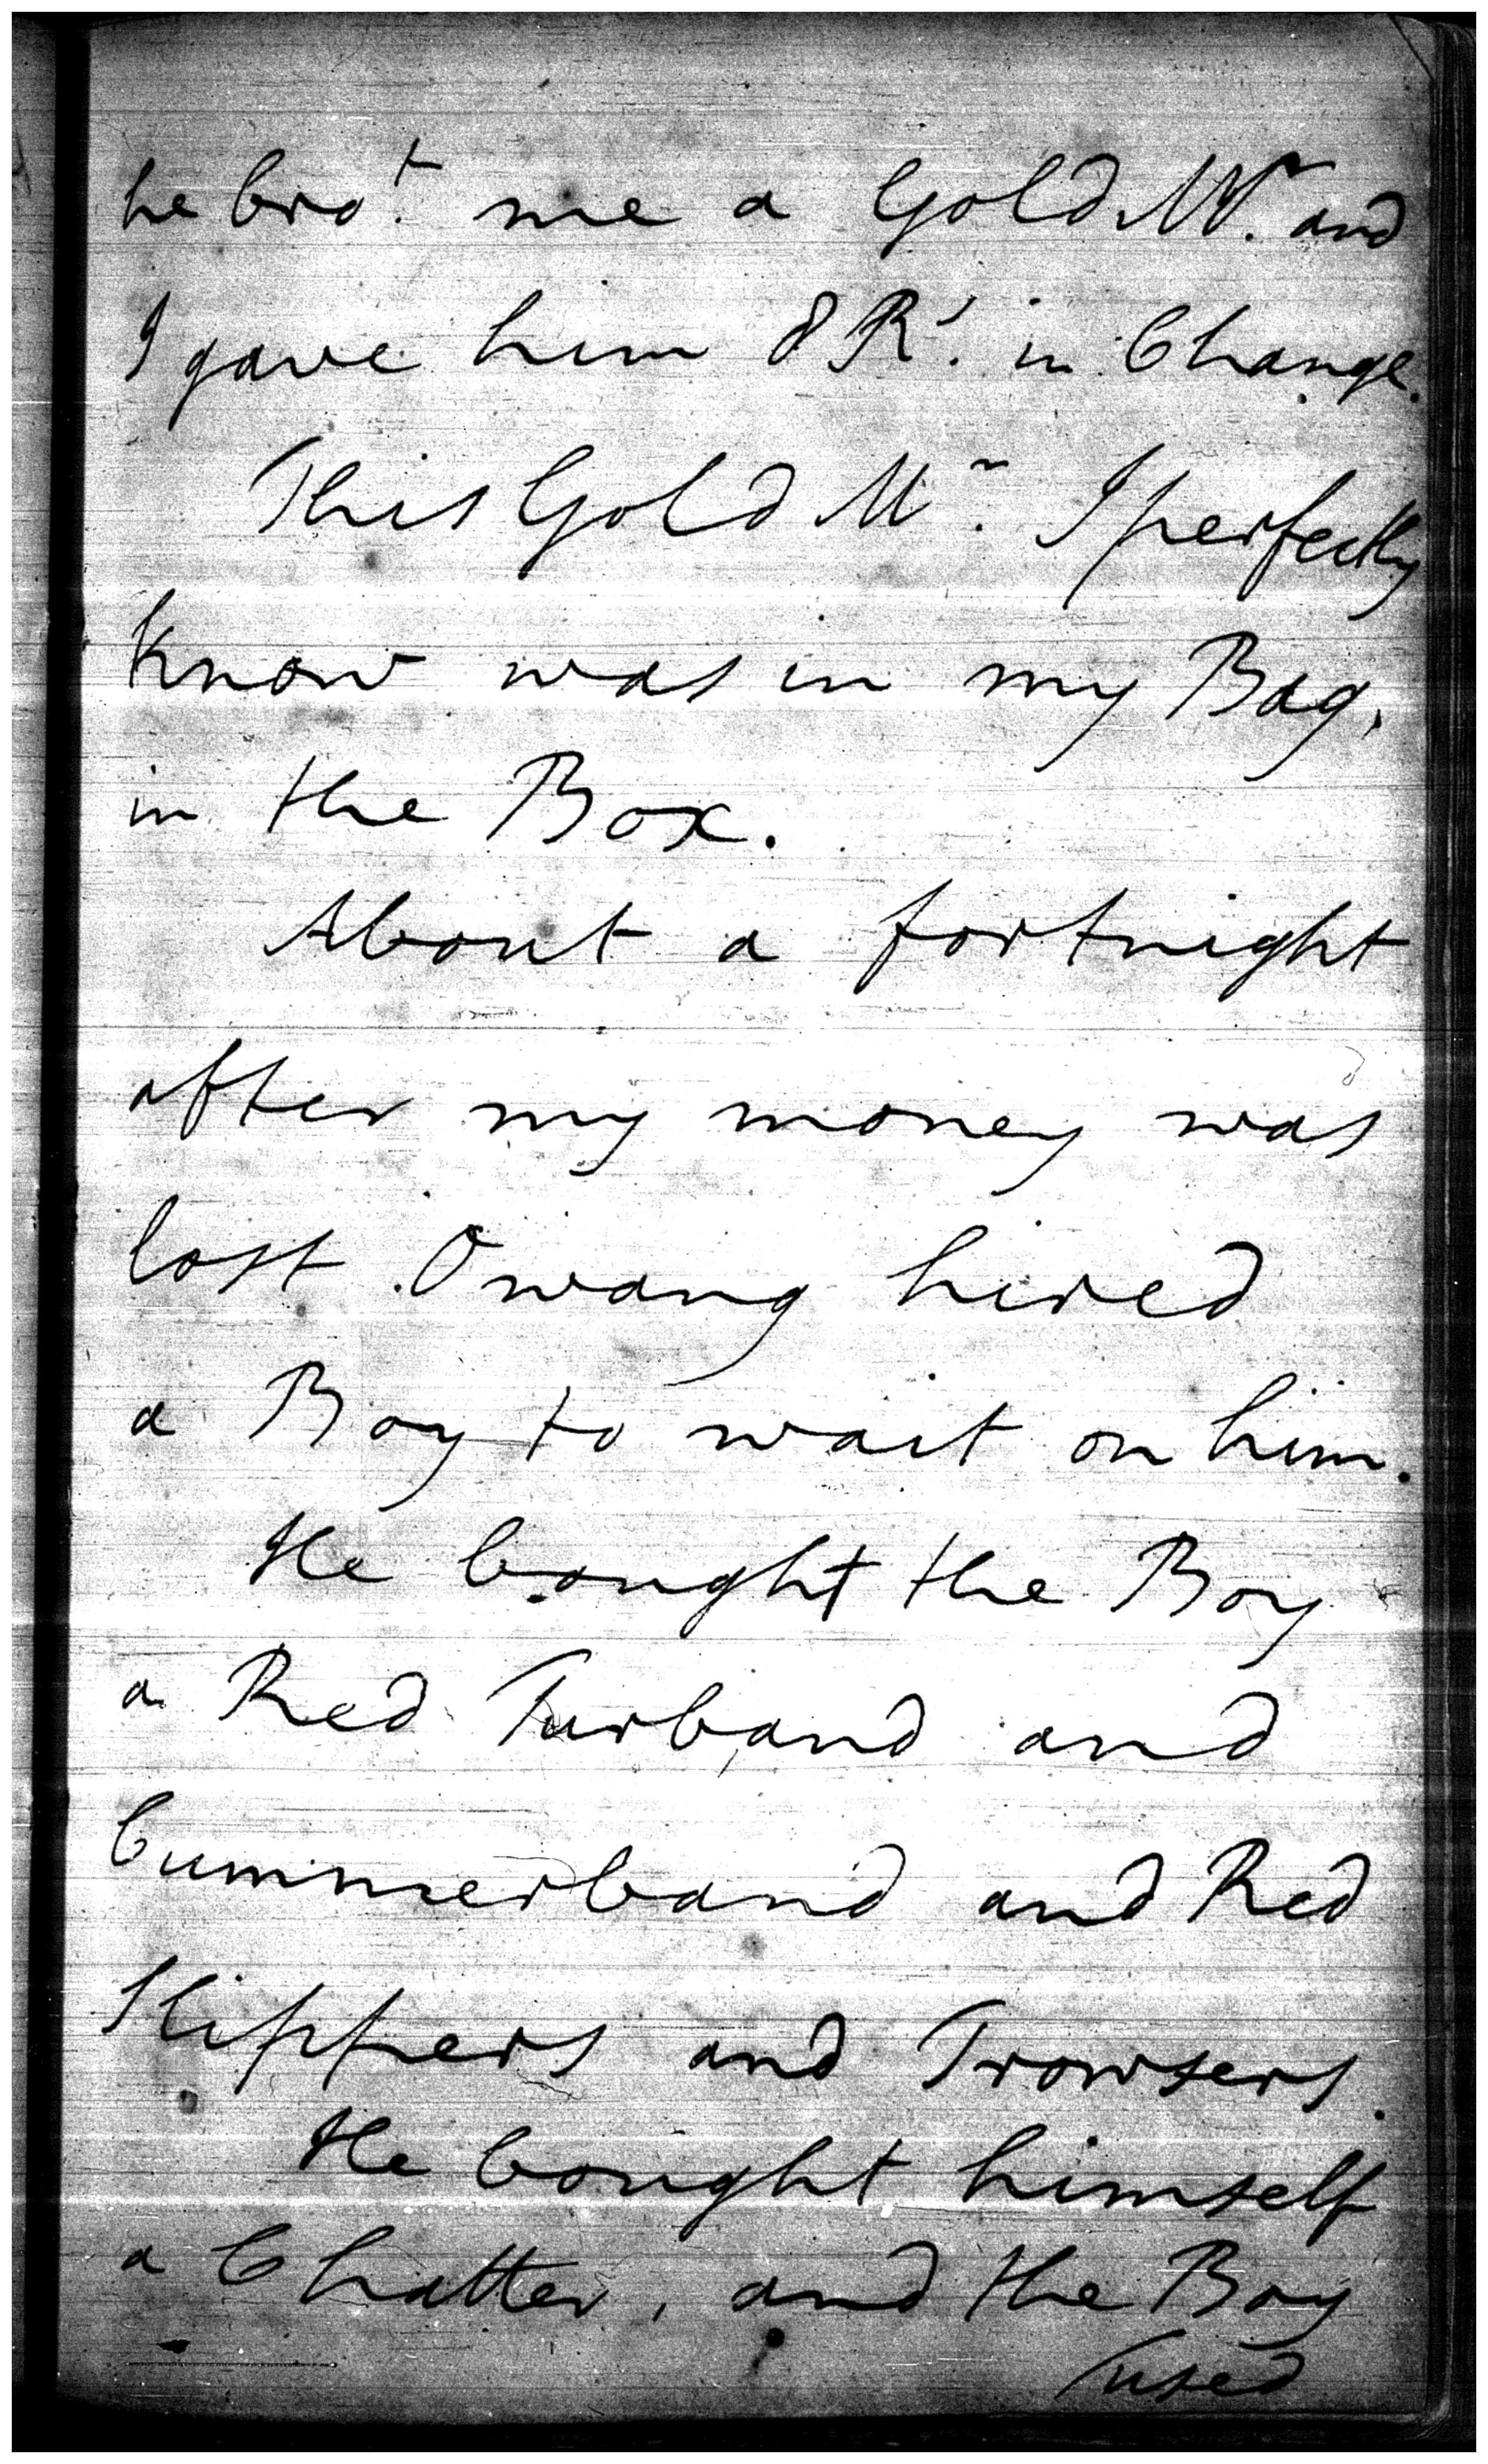 he bro.t me a Gold Mr. and
I gave him 8 Rs. in Change.
This Gold Mr. I perfectly
know was in my Bag,
in the Box.
About a fortnight
after my money was
lost Owang hired
a Boy to wait on him.
He bought the Boy
a Red Turband and
Cummerband and Red
Slippers and Trowsers.
He bought himself
a Chatter, and the Boy
used